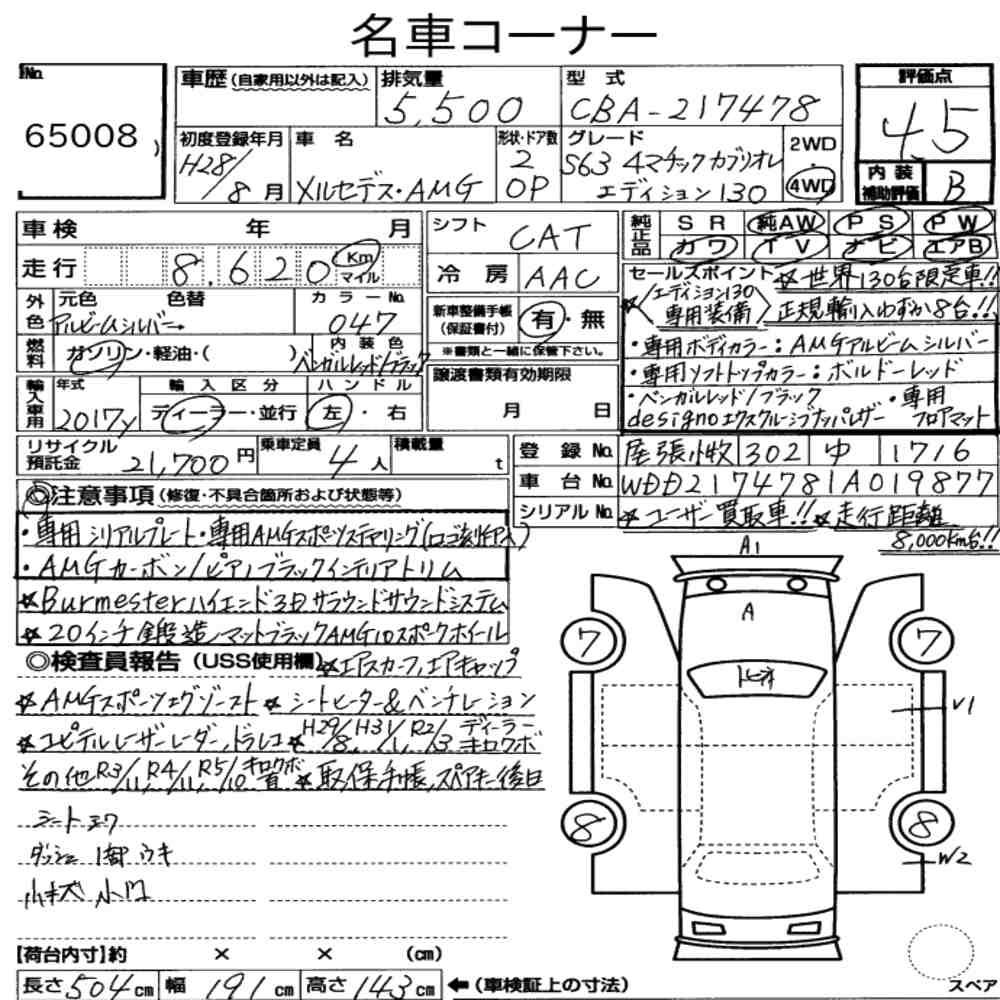 名車コーナー
No.
65008
車歴 (自家用以外は記入)
排気量
5,500
型式
CBA-217478
評価点
4.5
初度登録年月
H28/8月
車名
メルセデス・AMG
形状・ドア数
2
OP
グレード
S63 4マチックカブリオレ
エディション130
2WD
・
4WD
内装
補助評価
B
車検 年 月
シフト
CAT
純正品
SR 純AW PS PW
カワ TV ナビ エアB
走行 8.620 Km
マイル
冷房 AAC
セールスポイント ☆世界130台限定車!!
☆/エディション130
専用装備〉正規輸入わずか8台!!
外色
元色 色替
アルビームシルバー→
カラーNo.
047
新車整備手帳
(保証書付)
有・無
※書類と一緒に保管下さい。
・専用ボディカラー:AMGアルビームシルバー
・専用ソフトトップカラー:ボルドーレッド
燃料
ガソリン・軽油・( )
内装色
ベンガルレッド/ブラック
・ベンガルレッド/ブラック ・専用
designoエクスクルーシブナッパレザー フロアマット
輸入車用
年式
2017y
輸入区分
ディーラー・並行
ハンドル
左・右
譲渡書類有効期限
月 日
リサイクル
預託金
21,700円
乗車定員
4人
積載量
t
登録No. 尾張小牧 302 ゆ 1716
車台No. WDD2174781A019877
シリアルNo. ☆ユーザー買取車!! ☆走行距離
8,000km台!!
◎注意事項 (修復・不具合箇所および状態等)
・専用シリアルプレート・専用AMGスポーツステアリング(ロゴ刻印入)
・AMGカーボン/ピアノブラックインテリアトリム
☆Burmesterハイエンド3Dサラウンドサウンドシステム
☆20インチ鍛造/マットブラックAMG10スポークホイール
◎検査員報告 (USS使用欄) ☆エアスカーフ,エアキャップ
☆AMGスポーツエグゾースト ☆シートヒーター&ベンチレーション
☆ユピテルレーザーレーダー,ドラレコ ☆H29/8,H31/1,R2/3 ディーラーキロクボ
その他R3/11,R4/11,R5/10 キロクボ有 ☆取,保,手帳,スペアキー後日
シートヨワ
ダッシュ 1部 ウキ
A1
A
トビオ
7
7
V1
8
8
W2
【荷台内寸】約 × × (cm)
長さ504cm 幅191cm 高さ143cm ←(車検証上の寸法)
スペア